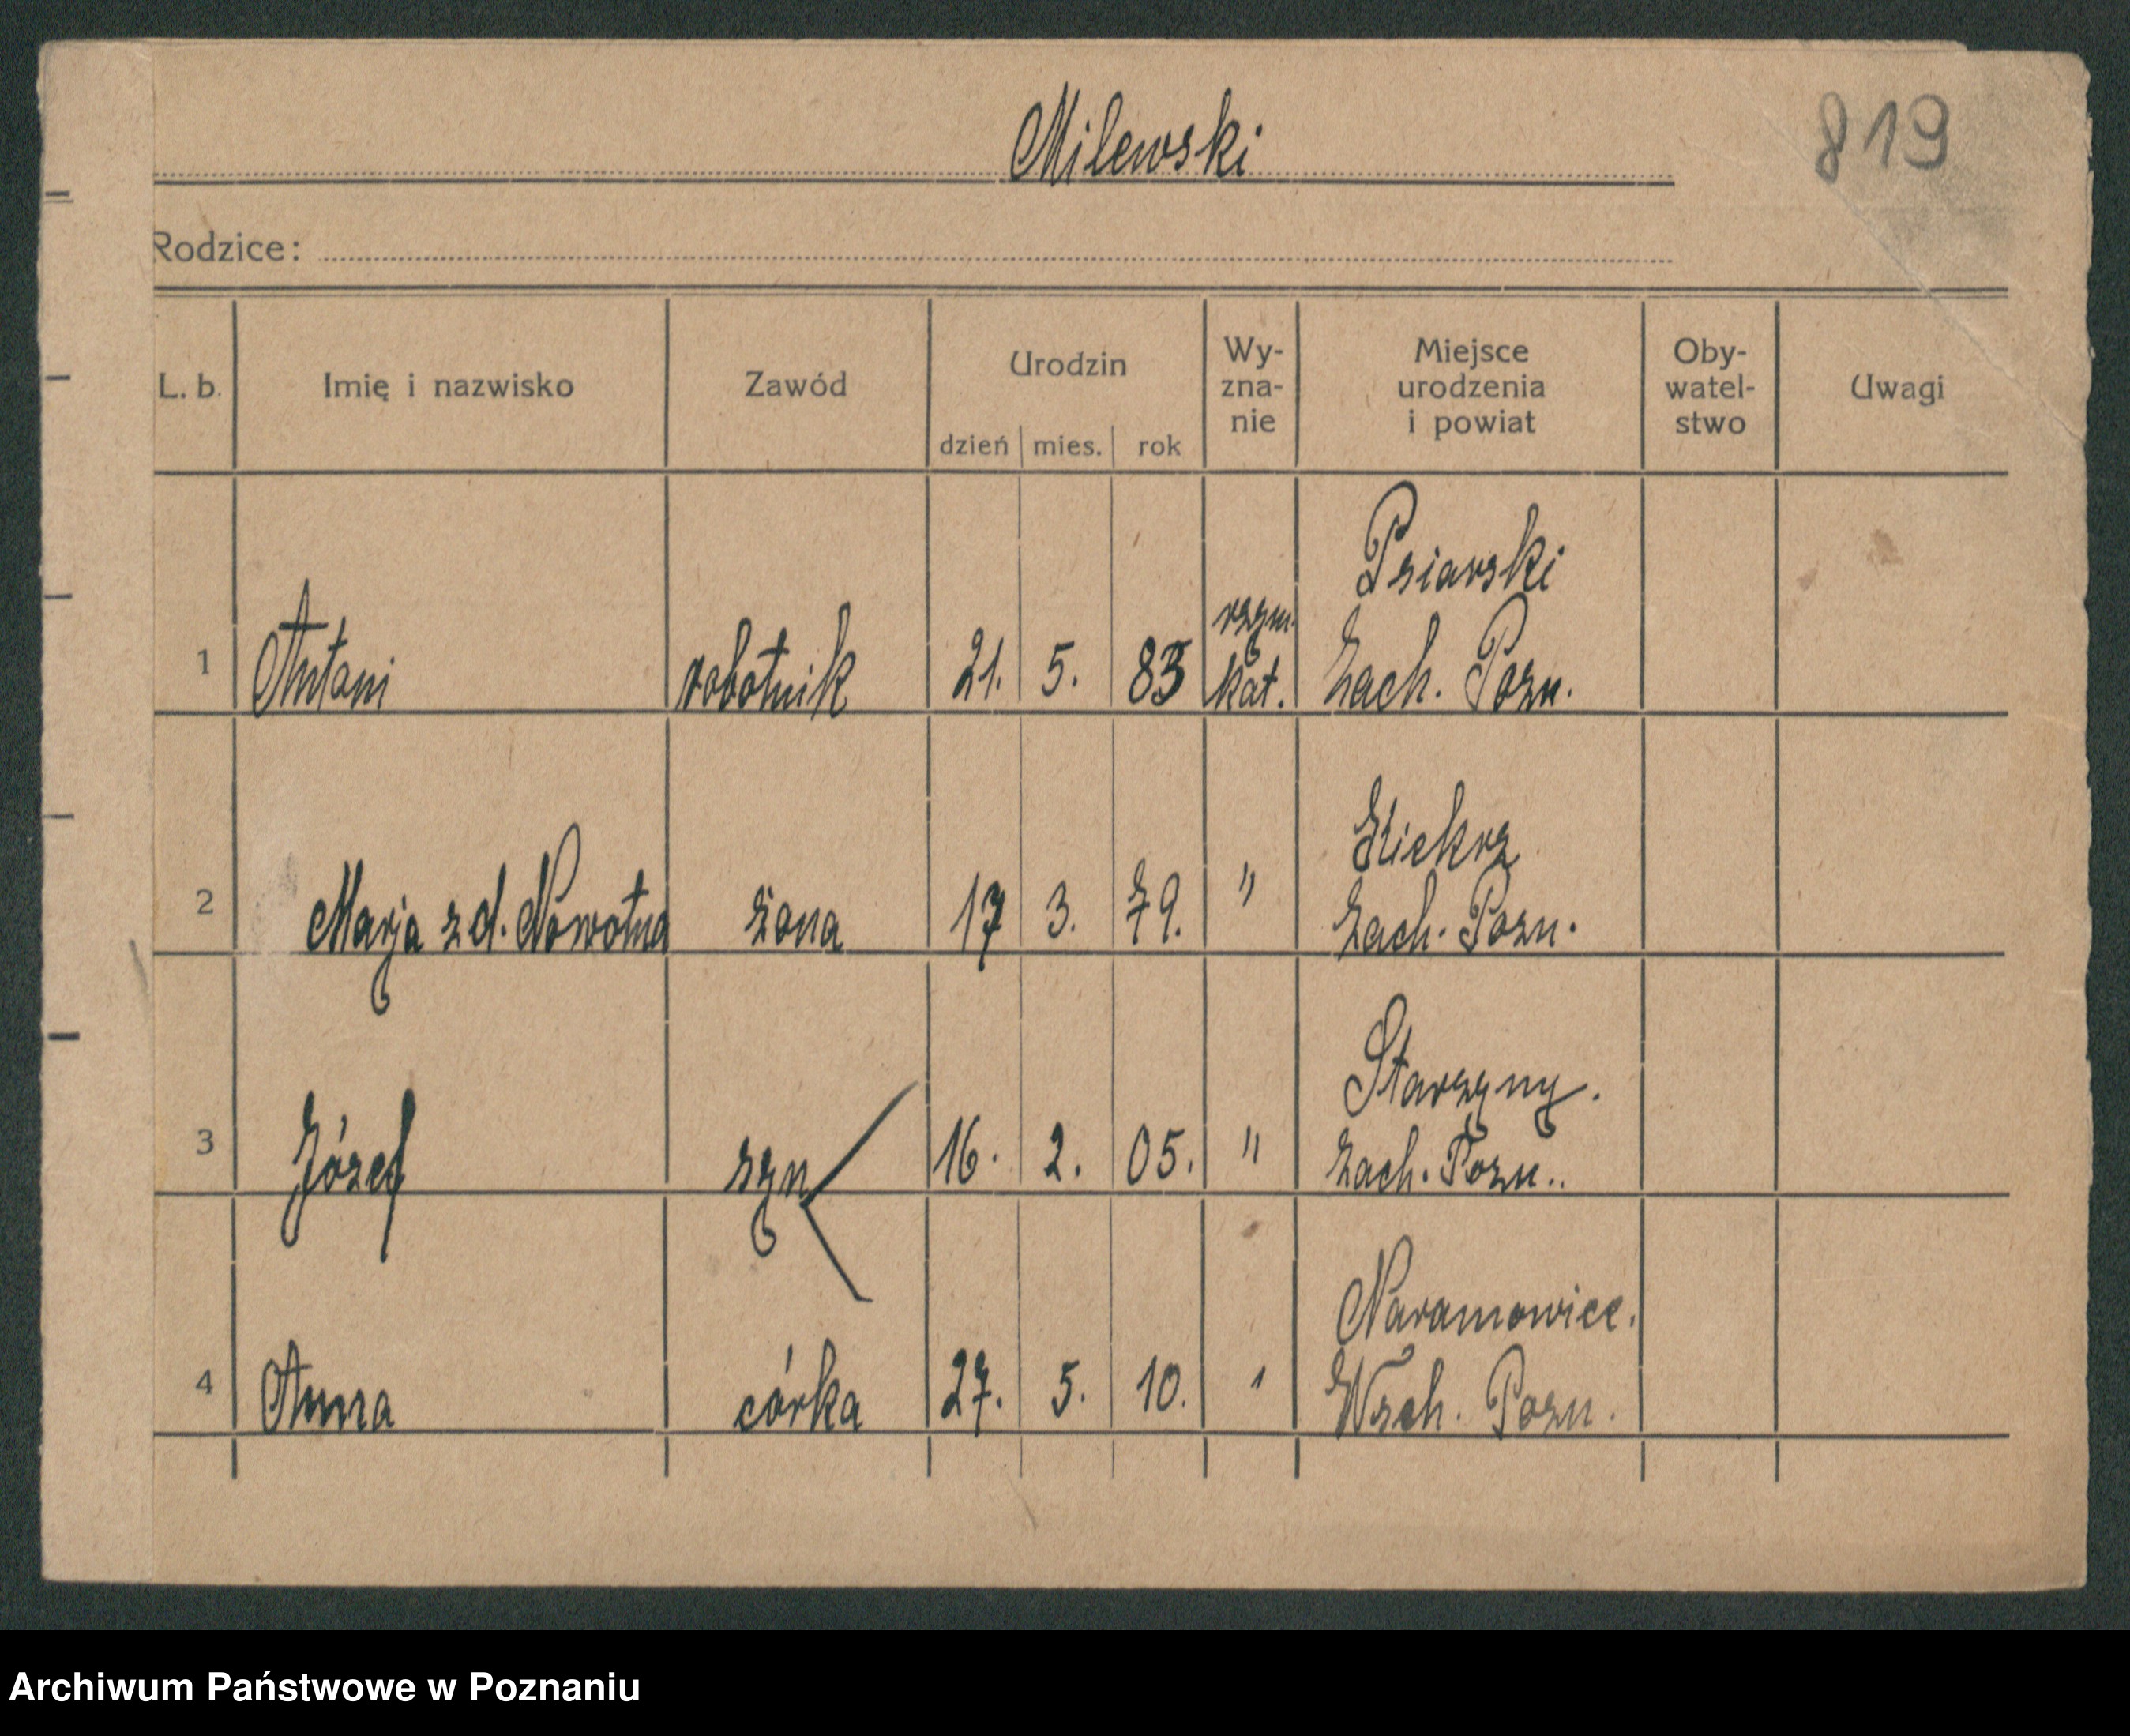 Milewski
819
Rodzice:
L. b. Imię i nazwisko Zawód Urodzin dzień mies. rok Wy-zna-nie Miejsce urodzenia i powiat Oby-watel-stwo Uwagi
Psiarski
rzym.
1 Antoni robotnik 21. 5. 83 kat. Zach. Pozn.
Kiekrz
2 Marja z d. Nowotna żona 17 3. 79. " Zach. Pozn.
Starzyny.
3 Józef syn 16. 2. 05. " Zach. Pozn..
Naramowice.
4 Anna córka 27. 5. 10. ' Wsch. Pozn.
Archiwum Państwowe w Poznaniu